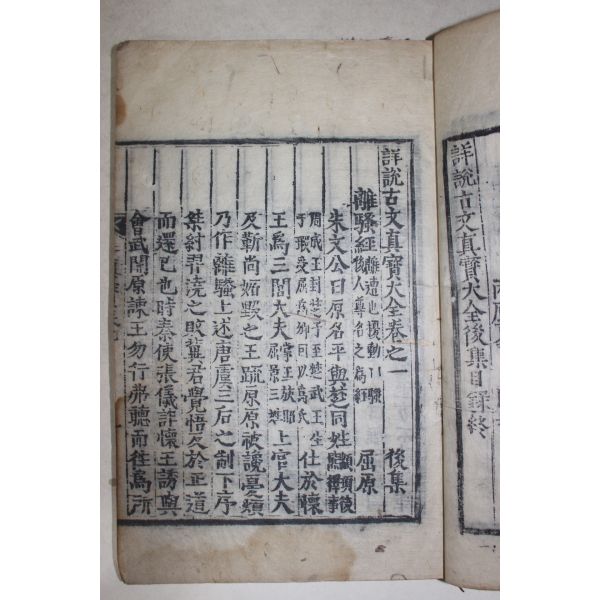 詳說古文眞寶大全後集目錄終
詳說古文眞寶大全卷之一 後集
離騷經 離遭也擾動曰騷後人尊名之爲經 屈原
朱文公曰原名平與楚同姓
仕於懷
王爲三閭大夫 上官大夫
及靳尙妬毀之王疏原原被讒憂煩
乃作離騷上述唐虞三后之制下序
桀紂羿澆之敗冀君覺悟反於正道
而還己也時秦使張儀詐懷王誘與
會武關原諫王勿行弗聽而往爲所